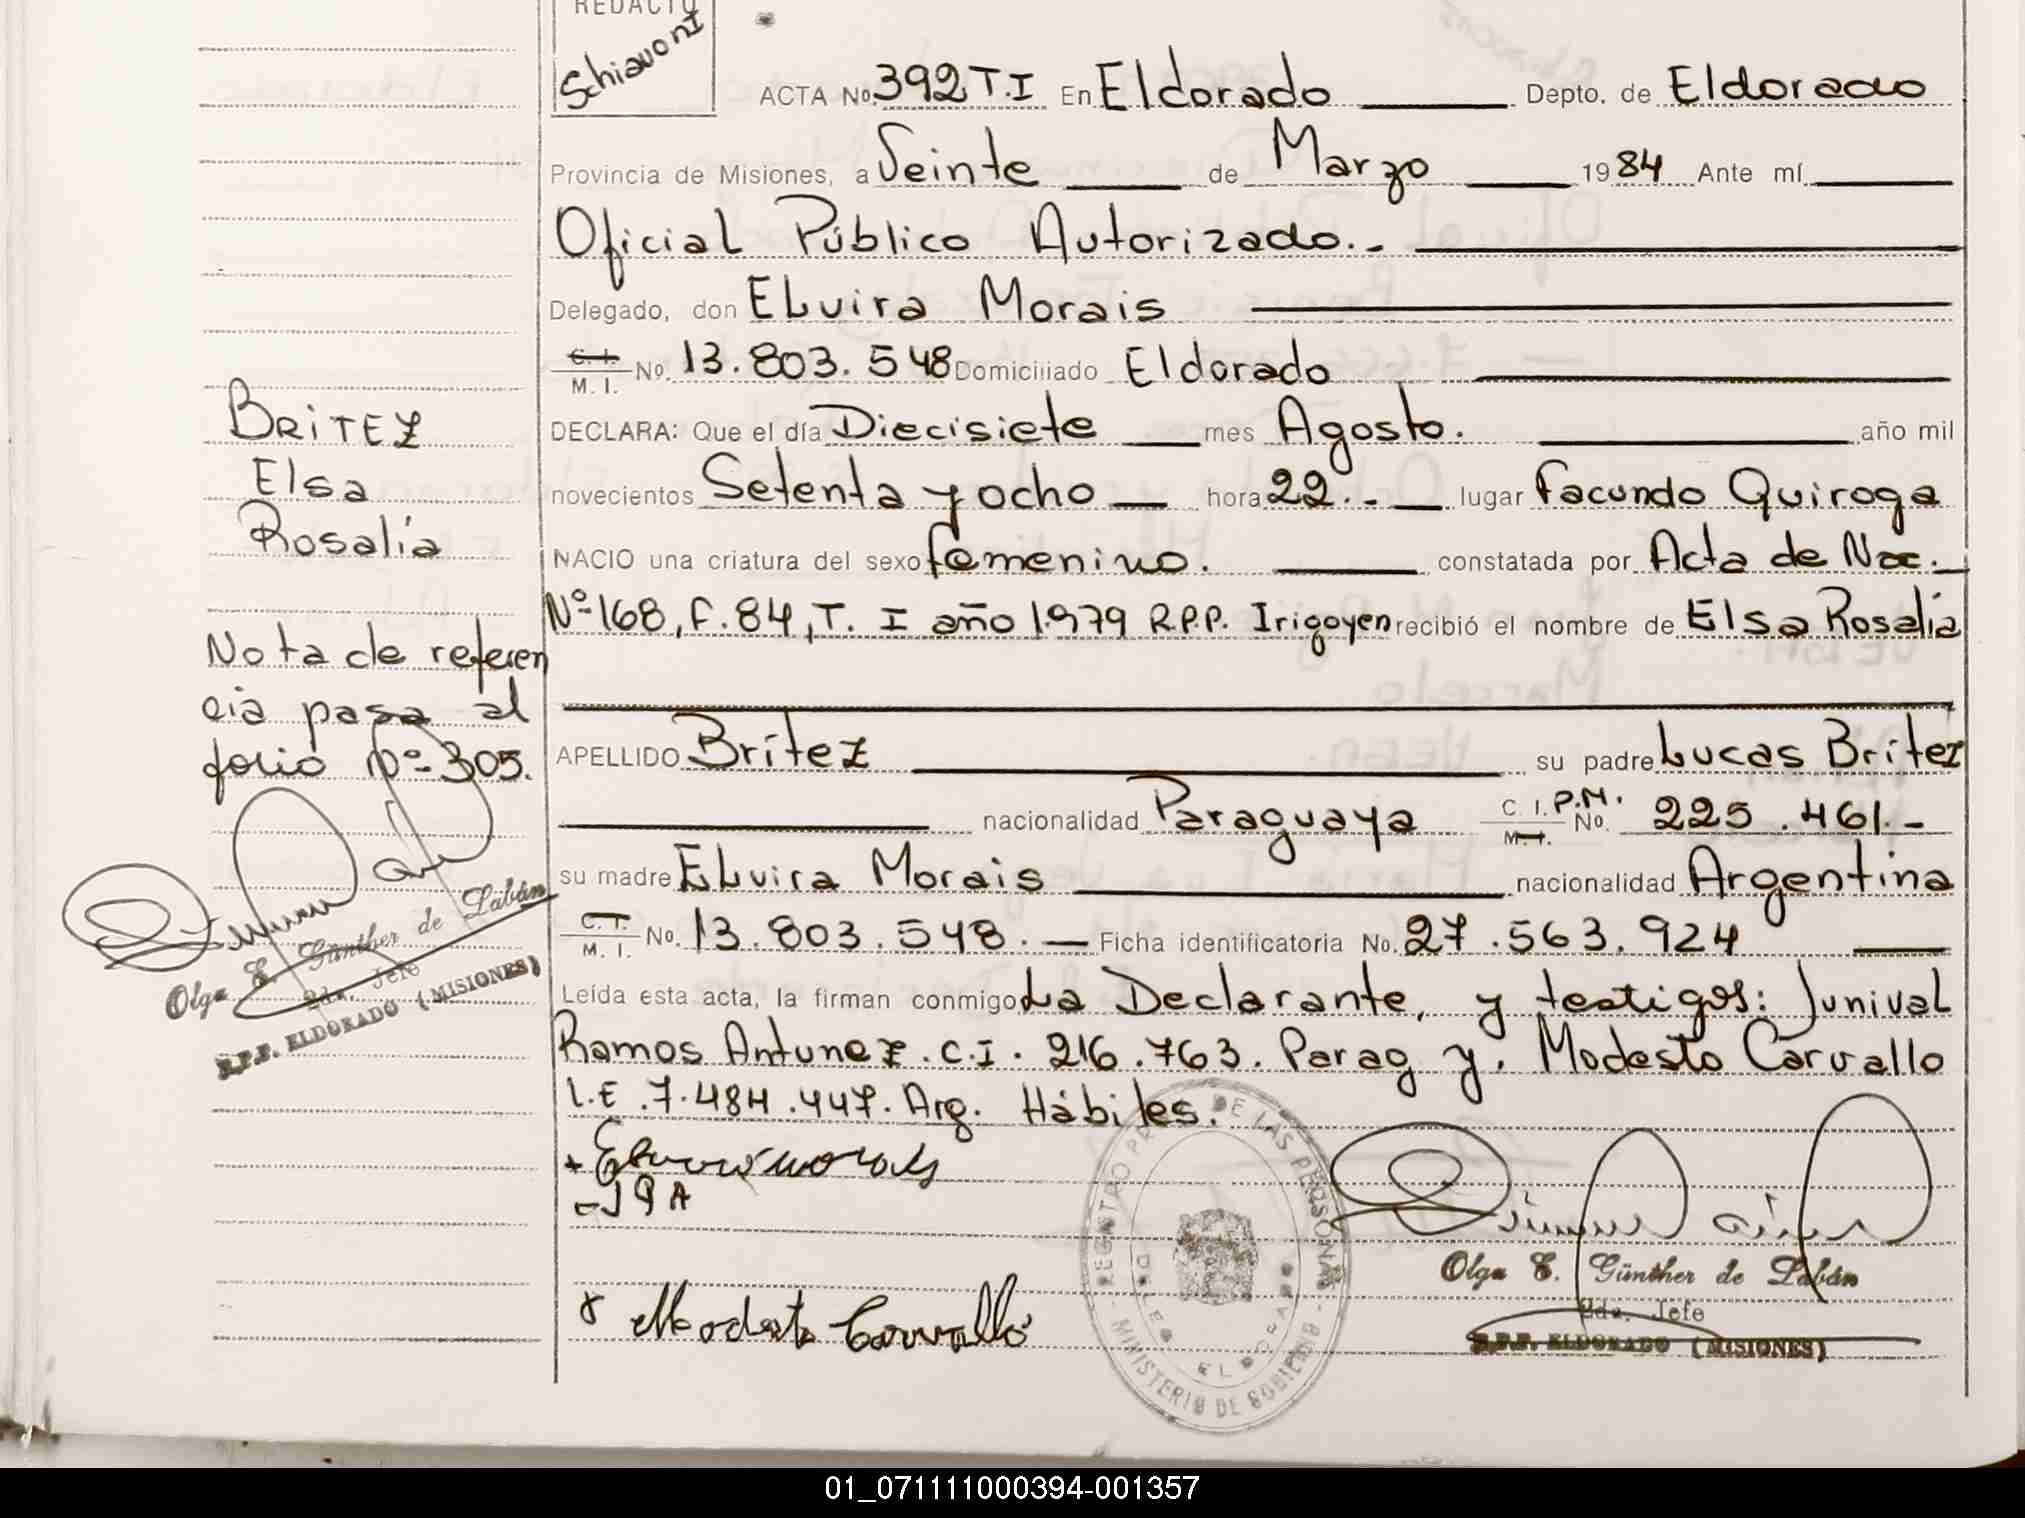 REDACTO
Schiavoni
ACTA No. 392 T.I En Eldorado Depto. de Eldorado
Provincia de Misiones, a Veinte de Marzo 1984 Ante mí
Oficial Público Autorizado.-
Delegado, don ELvira Morais
C. I.
M. I. No. 13.803.548 Domiciliado Eldorado
DECLARA: Que el día Diecisiete mes Agosto. año mil
novecientos Setenta y ocho hora 22.- lugar Facundo Quiroga
NACIO una criatura del sexo femenino. constatada por Acta de Nac.
Nº 168, F. 84, T. I año 1.979 R.P.P. Irigoyen recibió el nombre de Elsa Rosalía
APELLIDO Brítez su padre Lucas Brítez
nacionalidad Paraguaya C. I. P.M.
M. I. No. 225.461.-
su madre ELvira Morais nacionalidad Argentina
C. I.
M. I. No. 13.803.548. Ficha identificatoria No. 27.563.924
Leída esta acta, la firman conmigo La Declarante, y testigos: Junival
Ramos Antunez. C.I. 216.763. Parag y. Modesto Carvallo
L.E. 7.484.447. Arg. Hábiles.
Modesto Carvallo
REGISTRO PROV. DE LAS PERSONAS
MINISTERIO DE GOBIERNO
ELDORADO
Olga E. Günther de Labán
2da. Jefe
R.P.P. ELDORADO (MISIONES)
BRITEZ
Elsa
Rosalía
Nota de referen
cia pasa al
folio nº 305.
Olga E. Günther de Labán
2da. Jefe
R.P.P. ELDORADO (MISIONES)
01_071111000394-001357